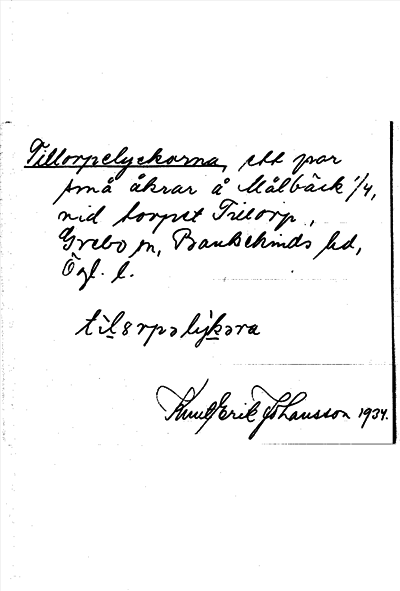 Tillorpelyckorna, ett par
små åkrar å Målbäck 1/4,
vid torpet Tillorp,
Grebo sn, Bankekinds hd,
Ögl. l.
Knut Erik Johansson 1934.